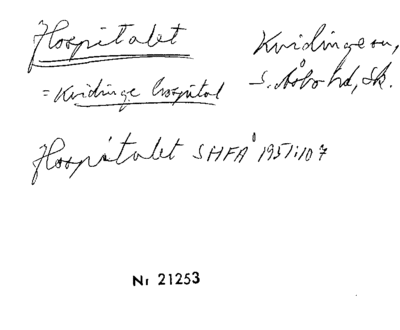 Hospitalet
Kvidinge sn,
= Kvidinge hospital
S. Åsbo hd, Sk.
Hospitalet SHFÅ 1951:107
Nr 21253